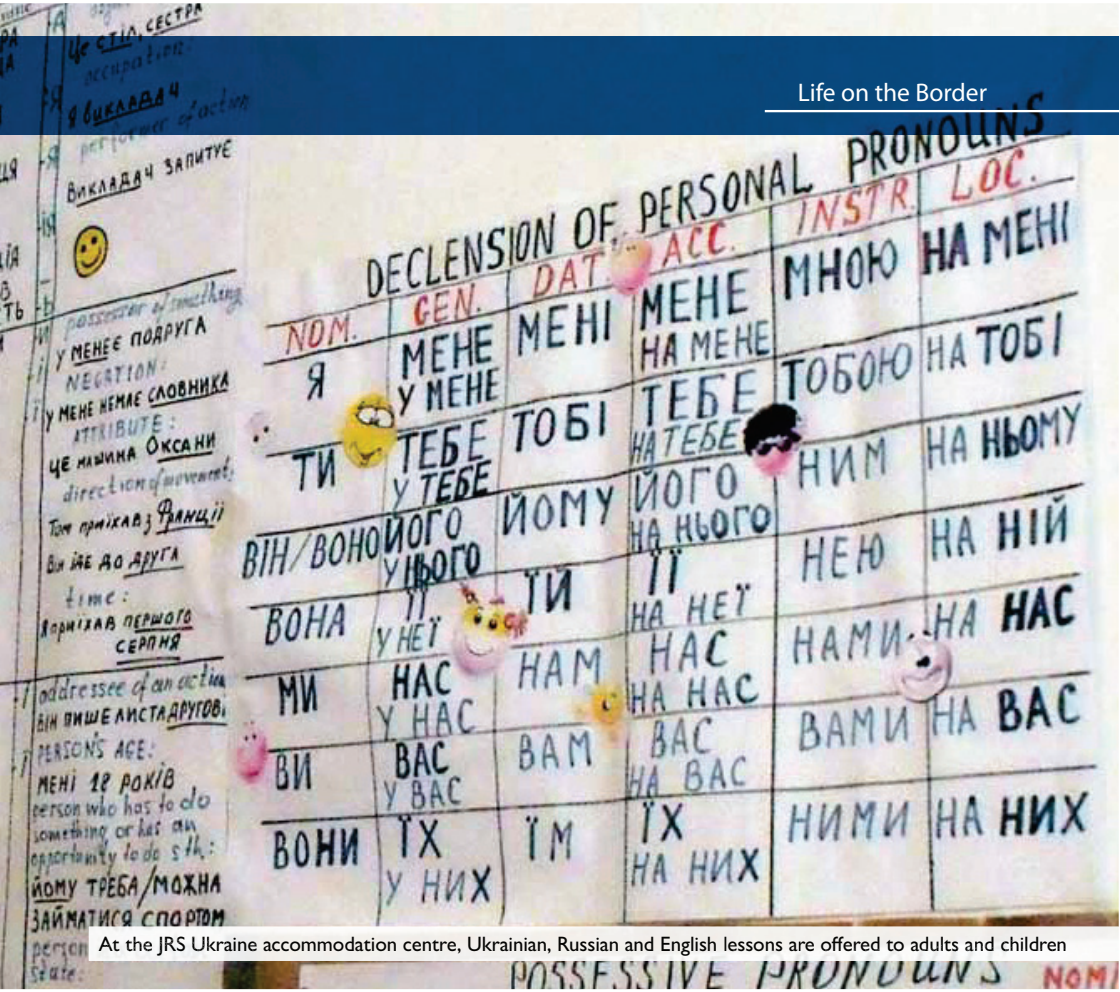 Life on the Border
Це СТІЛ, СЕСТРА
occupation:
Я ВИКЛАДАЧ
performer of action
ВИКЛАДАЧ ЗАПИТУЄ
possessor of something
У МЕНЕ Є ПОДРУГА
NEGATION:
У МЕНЕ НЕМАЄ СЛОВНИКА
ATTRIBUTE:
ЦЕ МАШИНА ОКСАНИ
direction of movement:
Том приїхав з Франції
Він іде до друга
time:
Я приїхав першого
СЕРПНЯ
addressee of an action
ВІН ПИШЕ ЛИСТА ДРУГОВІ
PERSON'S AGE:
МЕНІ 18 РОКІВ
person who has to do
something or has an
opportunity to do sth:
ЙОМУ ТРЕБА/МОЖНА
ЗАЙМАТИСЯ СПОРТОМ
person
state:
DECLENSION OF PERSONAL PRONOUNS
NOM. GEN. DAT ACC. INSTR. LOC.
Я МЕНЕ МЕНІ МЕНЕ МНОЮ НА МЕНІ
У МЕНЕ НА МЕНЕ
ТИ ТЕБЕ ТОБІ ТЕБЕ ТОБОЮ НА ТОБІ
У ТЕБЕ НА ТЕБЕ
ВІН/ВОНО ЙОГО ЙОМУ ЙОГО НИМ НА НЬОМУ
У НЬОГО НА НЬОГО
ВОНА ЇЇ ЇЙ ЇЇ НЕЮ НА НІЙ
У НЕЇ НА НЕЇ
МИ НАС НАМ НАС НАМИ НА НАС
У НАС НА НАС
ВИ ВАС ВАМ ВАС ВАМИ НА ВАС
У ВАС НА ВАС
ВОНИ ЇХ ЇМ ЇХ НИМИ НА НИХ
У НИХ НА НИХ
At the JRS Ukraine accommodation centre, Ukrainian, Russian and English lessons are offered to adults and children
POSSESSIVE PRONOUNS